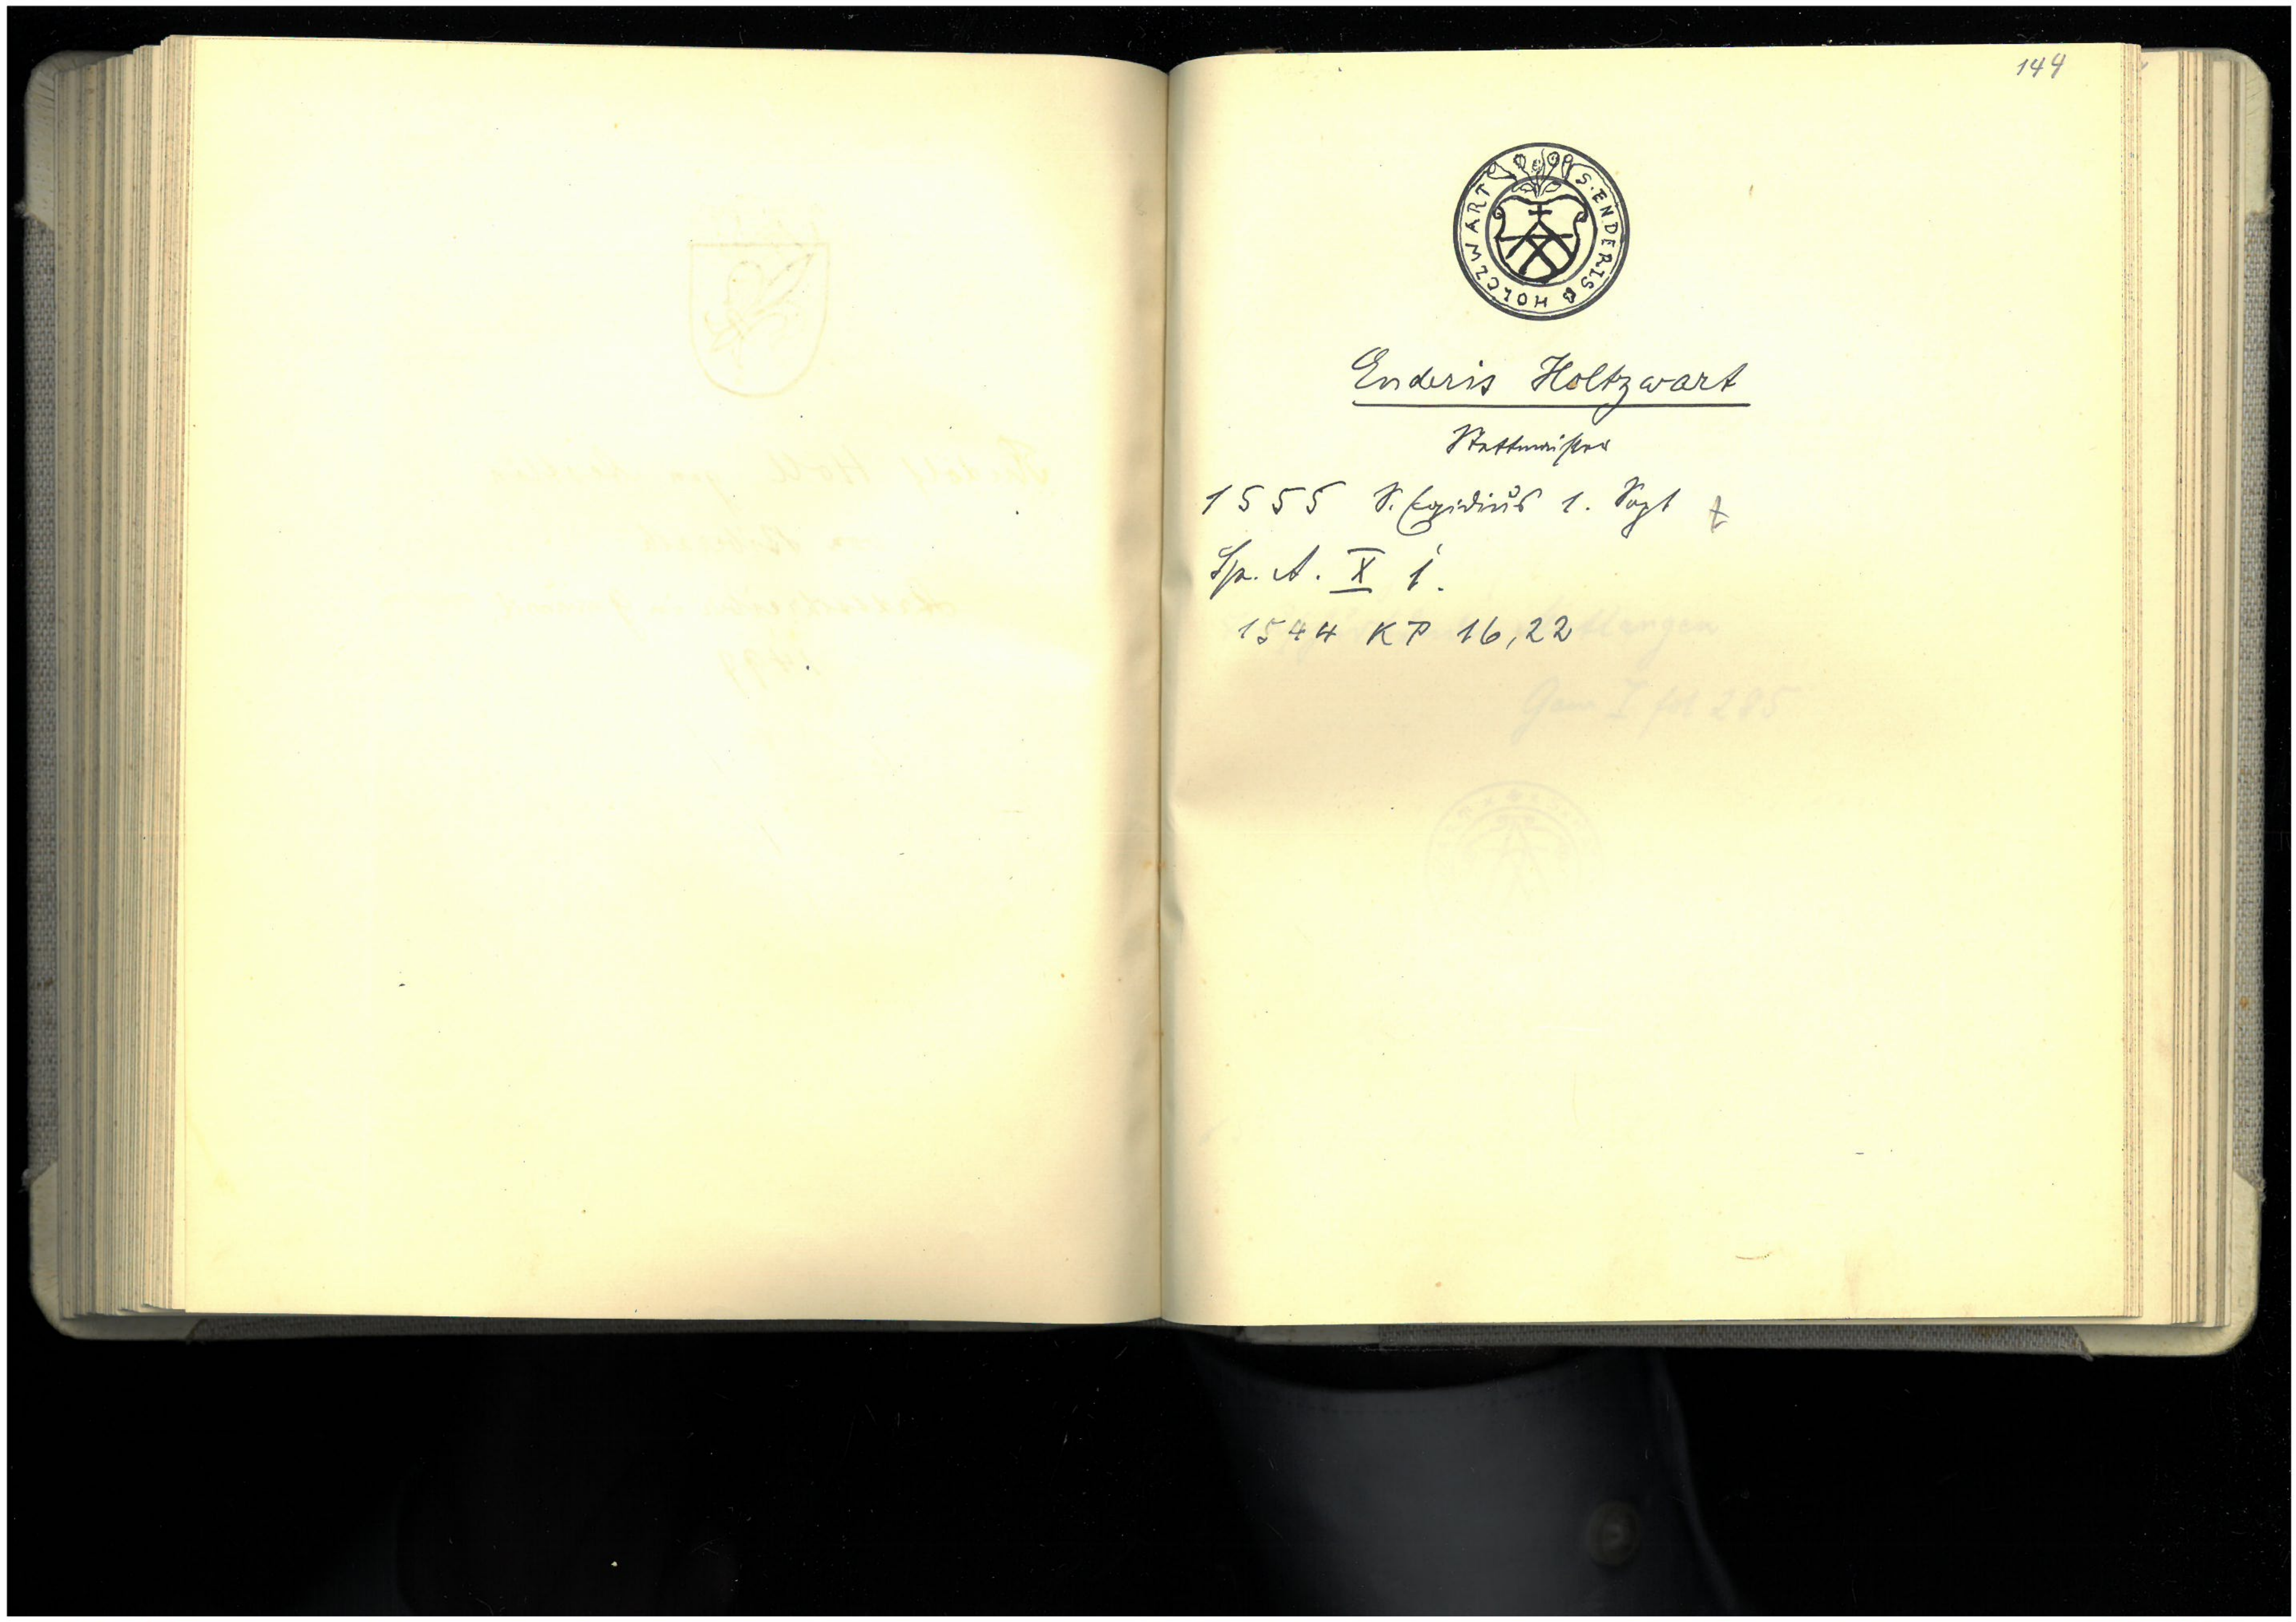 144
S. ENDERIS HOLCZWART
Enderis Holtzwart
Stettmeister
1555 S. Egidius 1. Vogt
Sp. A. X 1.
1544 KP 16,22
Gam I fol 285